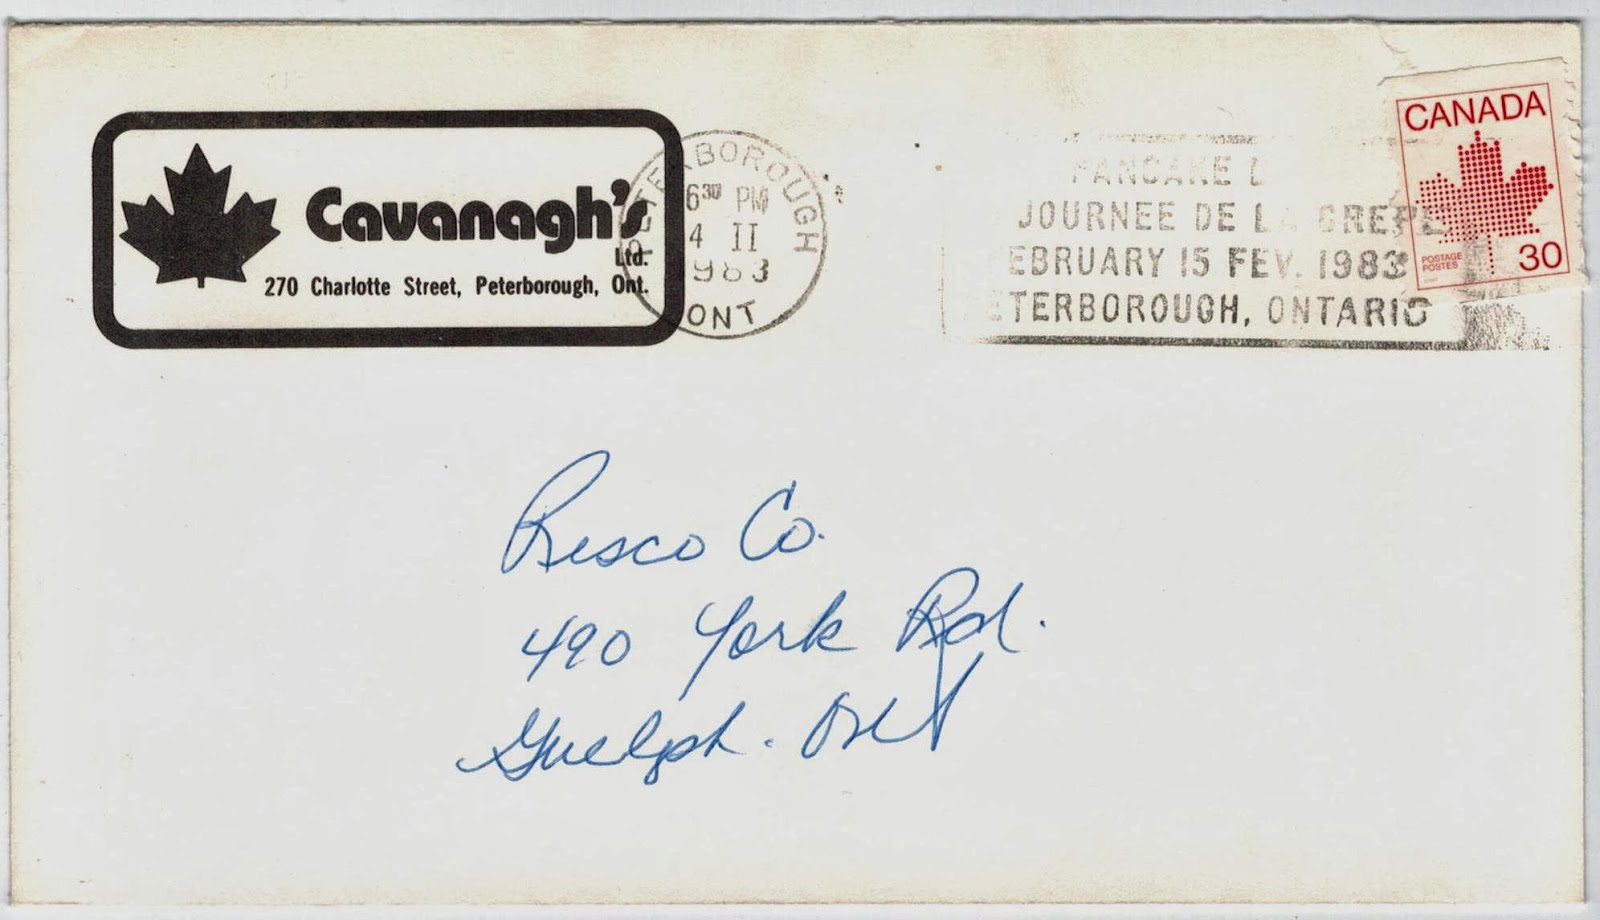 Cavanagh's
Ltd.
270 Charlotte Street, Peterborough, Ont.
PETERBOROUGH
6³⁰ PM
4 II
1983
ONT
PANCAKE D
JOURNEE DE LA CREPE
FEBRUARY 15 FEV. 1983
PETERBOROUGH, ONTARIO
CANADA
POSTAGE
POSTES
30
Resco Co.
490 York Rd.
Guelph. Ont